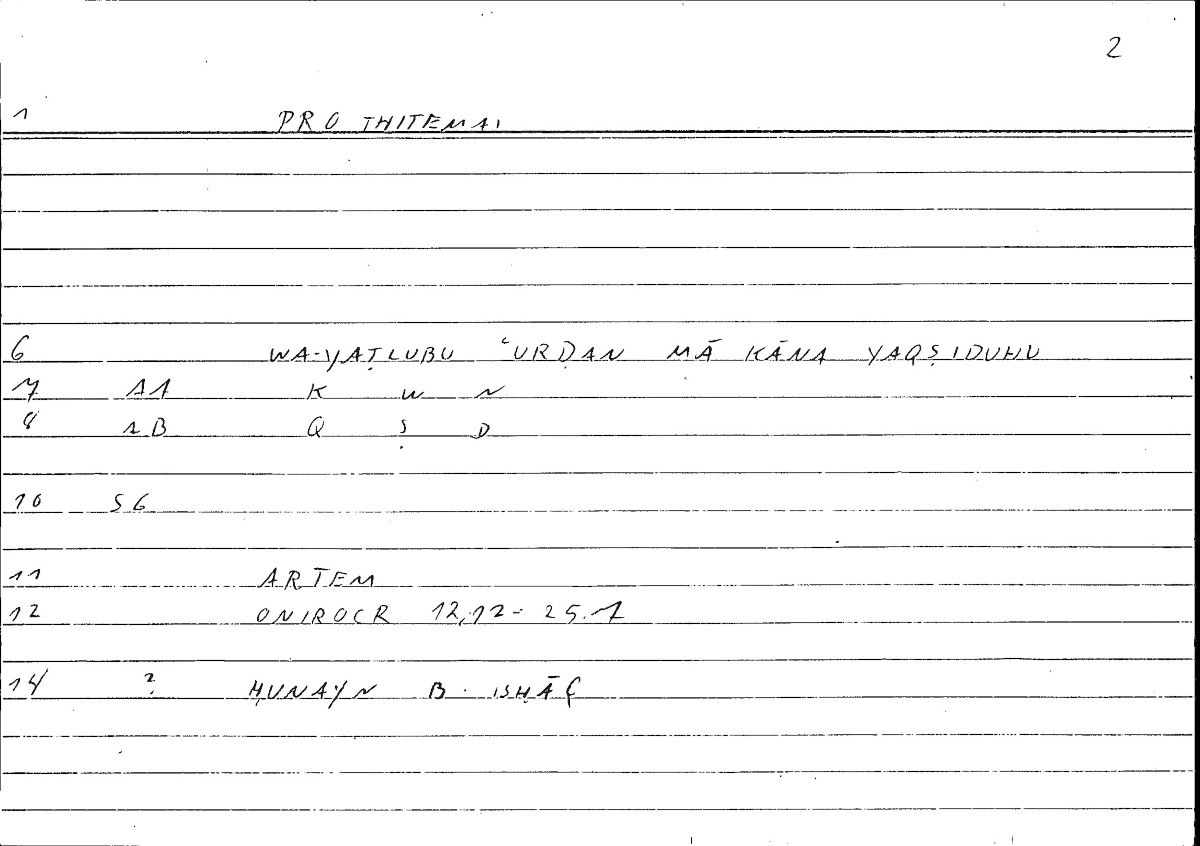 2
1 PRO THITEMAI
6 WA-YAṬLUBU ʿURḌAN MĀ KĀNA YAQṢIDUHU
7 A1 K W N
8 1B Q Ṣ D
10 SG
11 ARTEM
12 ONIROCR 12,12 - 25.1
14 ? ḤUNAYN B. ISḤĀQ